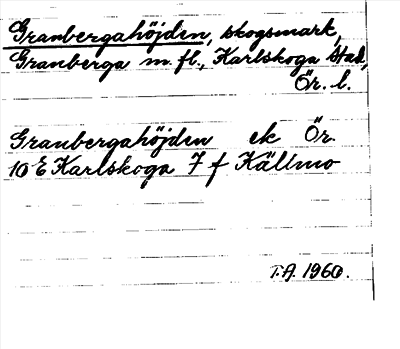 Granbergahöjden, skogsmark,
Granberga m. fl., Karlskoga stad,
Ör. l.
Granbergahöjden ek Ör.
10 E Karlskoga 7 f Källmo
T.A. 1960.